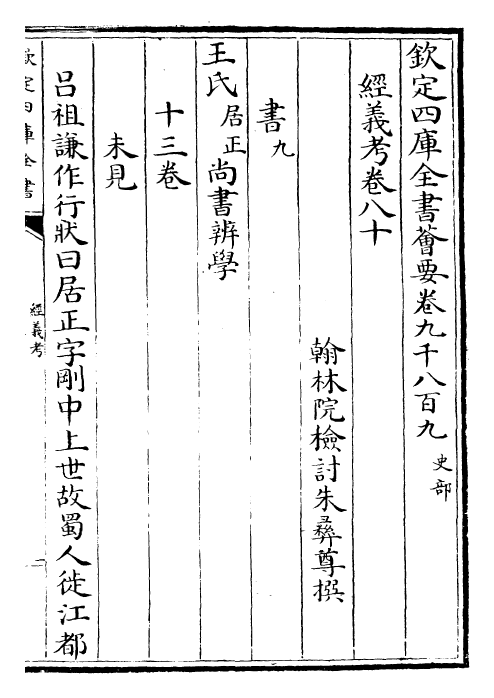 欽定四庫全書薈要卷九千八百九 史部
經義考卷八十
翰林院檢討朱彝尊撰
書九
王氏居正尚書辨學
十三卷
未見
呂祖謙作行狀曰居正字剛中上世故蜀人徙江都
欽定四庫全書
經義考
一